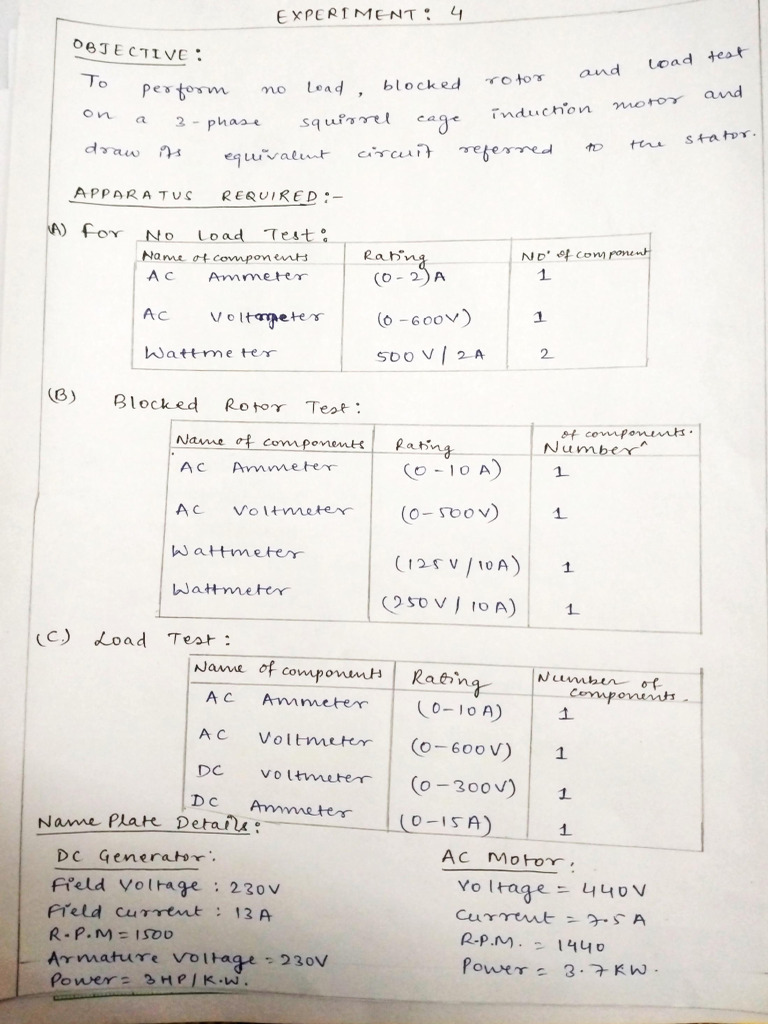 EXPERIMENT: 4
OBJECTIVE:
To perform no load, blocked rotor and load test
on a 3-phase squirrel cage induction motor and
draw its equivalent circuit referred to the stator.
APPARATUS REQUIRED:-
(A) For No Load Test:
Name of components Rating No. of component
AC Ammeter (0-2)A 1
AC Voltmeter (0-600V) 1
Wattmeter 500 V/2A 2
(B) Blocked Rotor Test:
Name of components Rating Number of components.
AC Ammeter (0-10A) 1
AC Voltmeter (0-500V) 1
Wattmeter (125V/10A) 1
Wattmeter (250V/10A) 1
(C.) Load Test:
Name of components Rating Number of components.
AC Ammeter (0-10A) 1
AC Voltmeter (0-600V) 1
DC Voltmeter (0-300V) 1
DC Ammeter (0-15A) 1
Name Plate Details:
DC Generator:
Field Voltage : 230V
Field Current : 13A
R.P.M = 1500
Armature Voltage = 230V
Power = 3HP/K.W.
AC Motor:
Voltage = 440V
Current = 7.5A
R.P.M. = 1440
Power = 3.7KW.